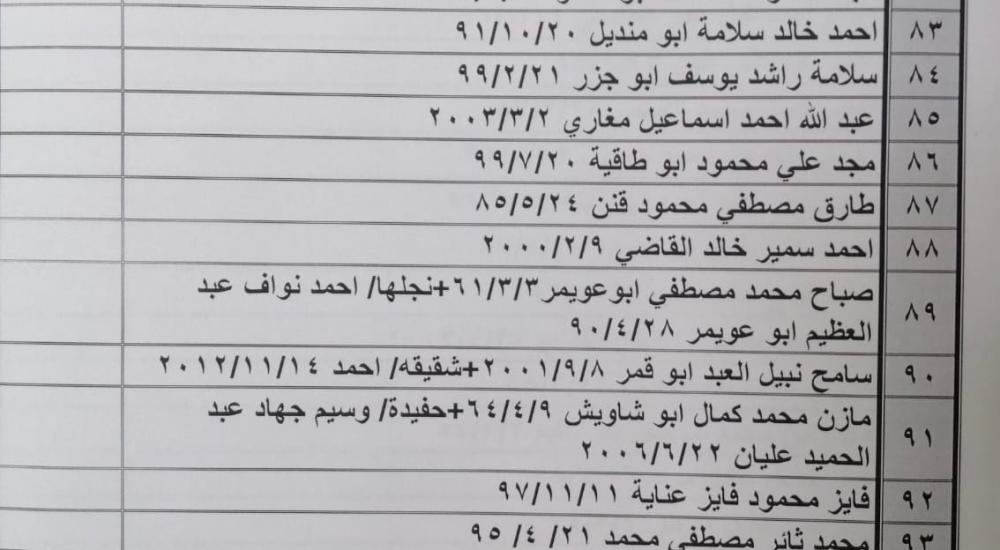 ٨٣ احمد خالد سلامة ابو منديل ٩١/١٠/٢٠
٨٤ سلامة راشد يوسف ابو جزر ٩٩/٢/٢١
٨٥ عبد الله احمد اسماعيل مغاري ٢٠٠٣/٣/٢
٨٦ مجد علي محمود ابو طاقية ٩٩/٧/٢٠
٨٧ طارق مصطفي محمود قنن ٨٥/٥/٢٤
٨٨ احمد سمير خالد القاضي ٢٠٠٠/٢/٩
٨٩ صباح محمد مصطفي ابوعويمر٦١/٣/٣+نجلها/ احمد نواف عبد
العظيم ابو عويمر ٩٠/٤/٢٨
٩٠ سامح نبيل العبد ابو قمر ٢٠٠١/٩/٨+شقيقه/ احمد ٢٠١٢/١١/١٤
٩١ مازن محمد كمال ابو شاويش ٦٤/٤/٩+حفيدة/ وسيم جهاد عبد
الحميد عليان ٢٠٠٦/٦/٢٢
٩٢ فايز محمود فايز عناية ٩٧/١١/١١
٩٣ محمد ثائر مصطفي محمد ٩٥/ ٤/ ٢١